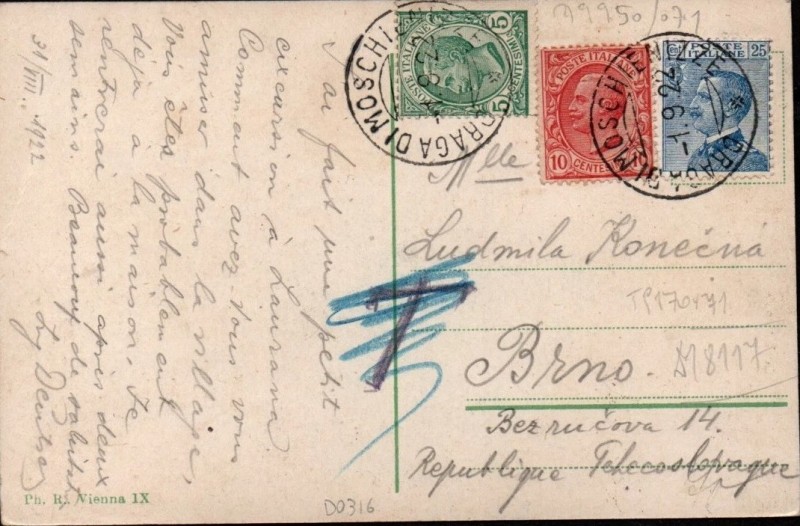 J'ai fait une petit
excursion à Laurana.
Comment avez-vous vous
amuser dans la village,
Vous êtes probablement
déjà à la maison. Je
rentrerai aussi après deux
semains. Beaucoup de salutat
31/VIII. 1922
39950/071
POSTE ITALIANE
CENTESIMI 5
POSTE ITALIANE
10 CENTES
POSTE ITALIANE 25
DRAGA DI MOSCHIENA
DRAGA DI MOSCHIENA
-1.9.22
Mlle
Ludmila Konečná
TP170471
Brno.
D18117
Bezručova 14.
Republique Tchecoslovaque
T
Ph. R., Vienna IX
D0316